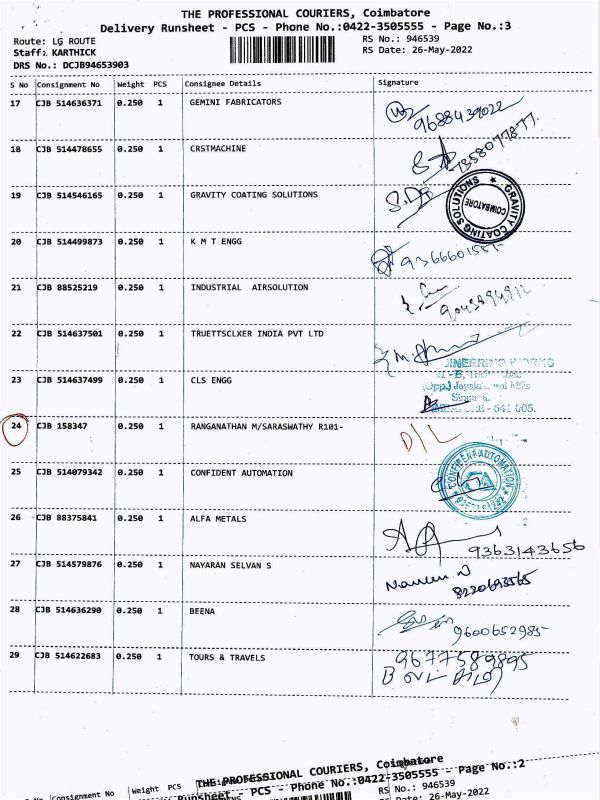 THE PROFESSIONAL COURIERS, Coimbatore
Delivery Runsheet - PCS - Phone No.:0422-3505555 - Page No.:3
Route: LG ROUTE RS No.: 946539
Staff: KARTHICK RS Date: 26-May-2022
DRS No.: DCJB94653903
S No Consignment No Weight PCS Consignee Details Signature
17 CJB 514636371 0.250 1 GEMINI FABRICATORS
9688439022
18 CJB 514478655 0.250 1 CRSTMACHINE
19 CJB 514546165 0.250 1 GRAVITY COATING SOLUTIONS
GRAVITY COATING SOLUTIONS COIMBATORE
20 CJB 514499873 0.250 1 K M T ENGG
21 CJB 88525219 0.250 1 INDUSTRIAL AIRSOLUTION
22 CJB 514637501 0.250 1 TRUETTSCLXER INDIA PVT LTD
23 CJB 514637499 0.250 1 CLS ENGG
641 005.
24 CJB 158347 0.250 1 RANGANATHAN M/SARASWATHY R101- D/L
25 CJB 514079342 0.250 1 CONFIDENT AUTOMATION
CONFIDENT AUTOMATION
26 CJB 88375841 0.250 1 ALFA METALS
9363143656
27 CJB 514579876 0.250 1 NAYARAN SELVAN S
Naveen N
8220693565
28 CJB 514636290 0.250 1 BEENA
9600652985
29 CJB 514622683 0.250 1 TOURS & TRAVELS 9677589895
THE PROFESSIONAL COURIERS, Coimbatore
Runsheet - PCS - Phone No.:0422-3505555 - Page No.:2
RS No.: 946539
Date: 26-May-2022
No Consignment No Weight PCS